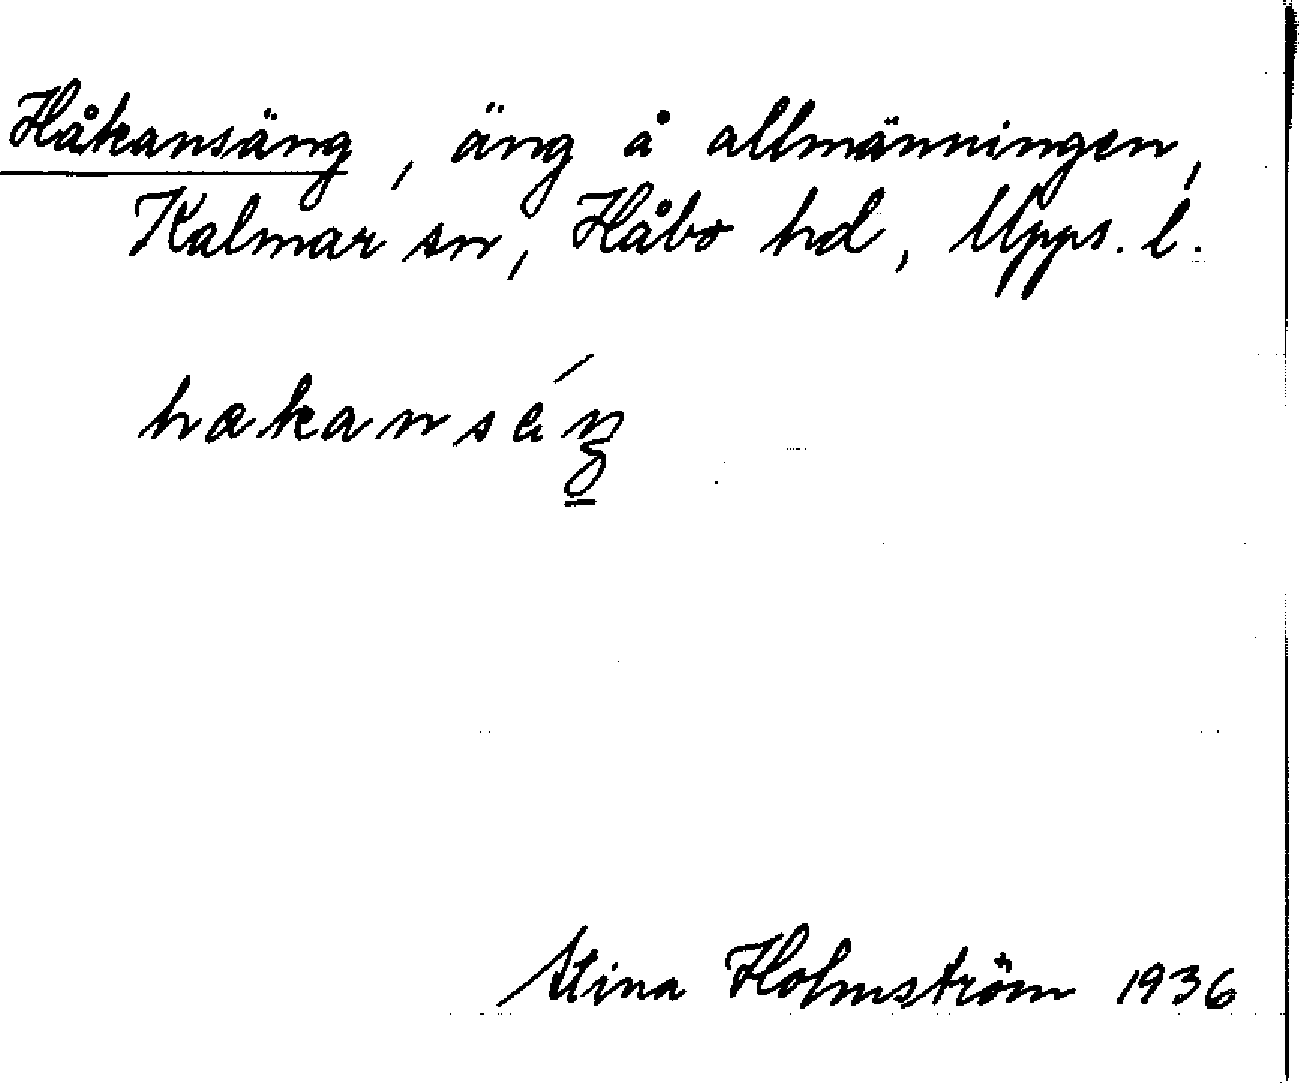 Håkansäng, äng å allmänningen,
Kalmar sn, Håbo hd, Upps. l.
hakansäŋ
Stina Holmström 1936